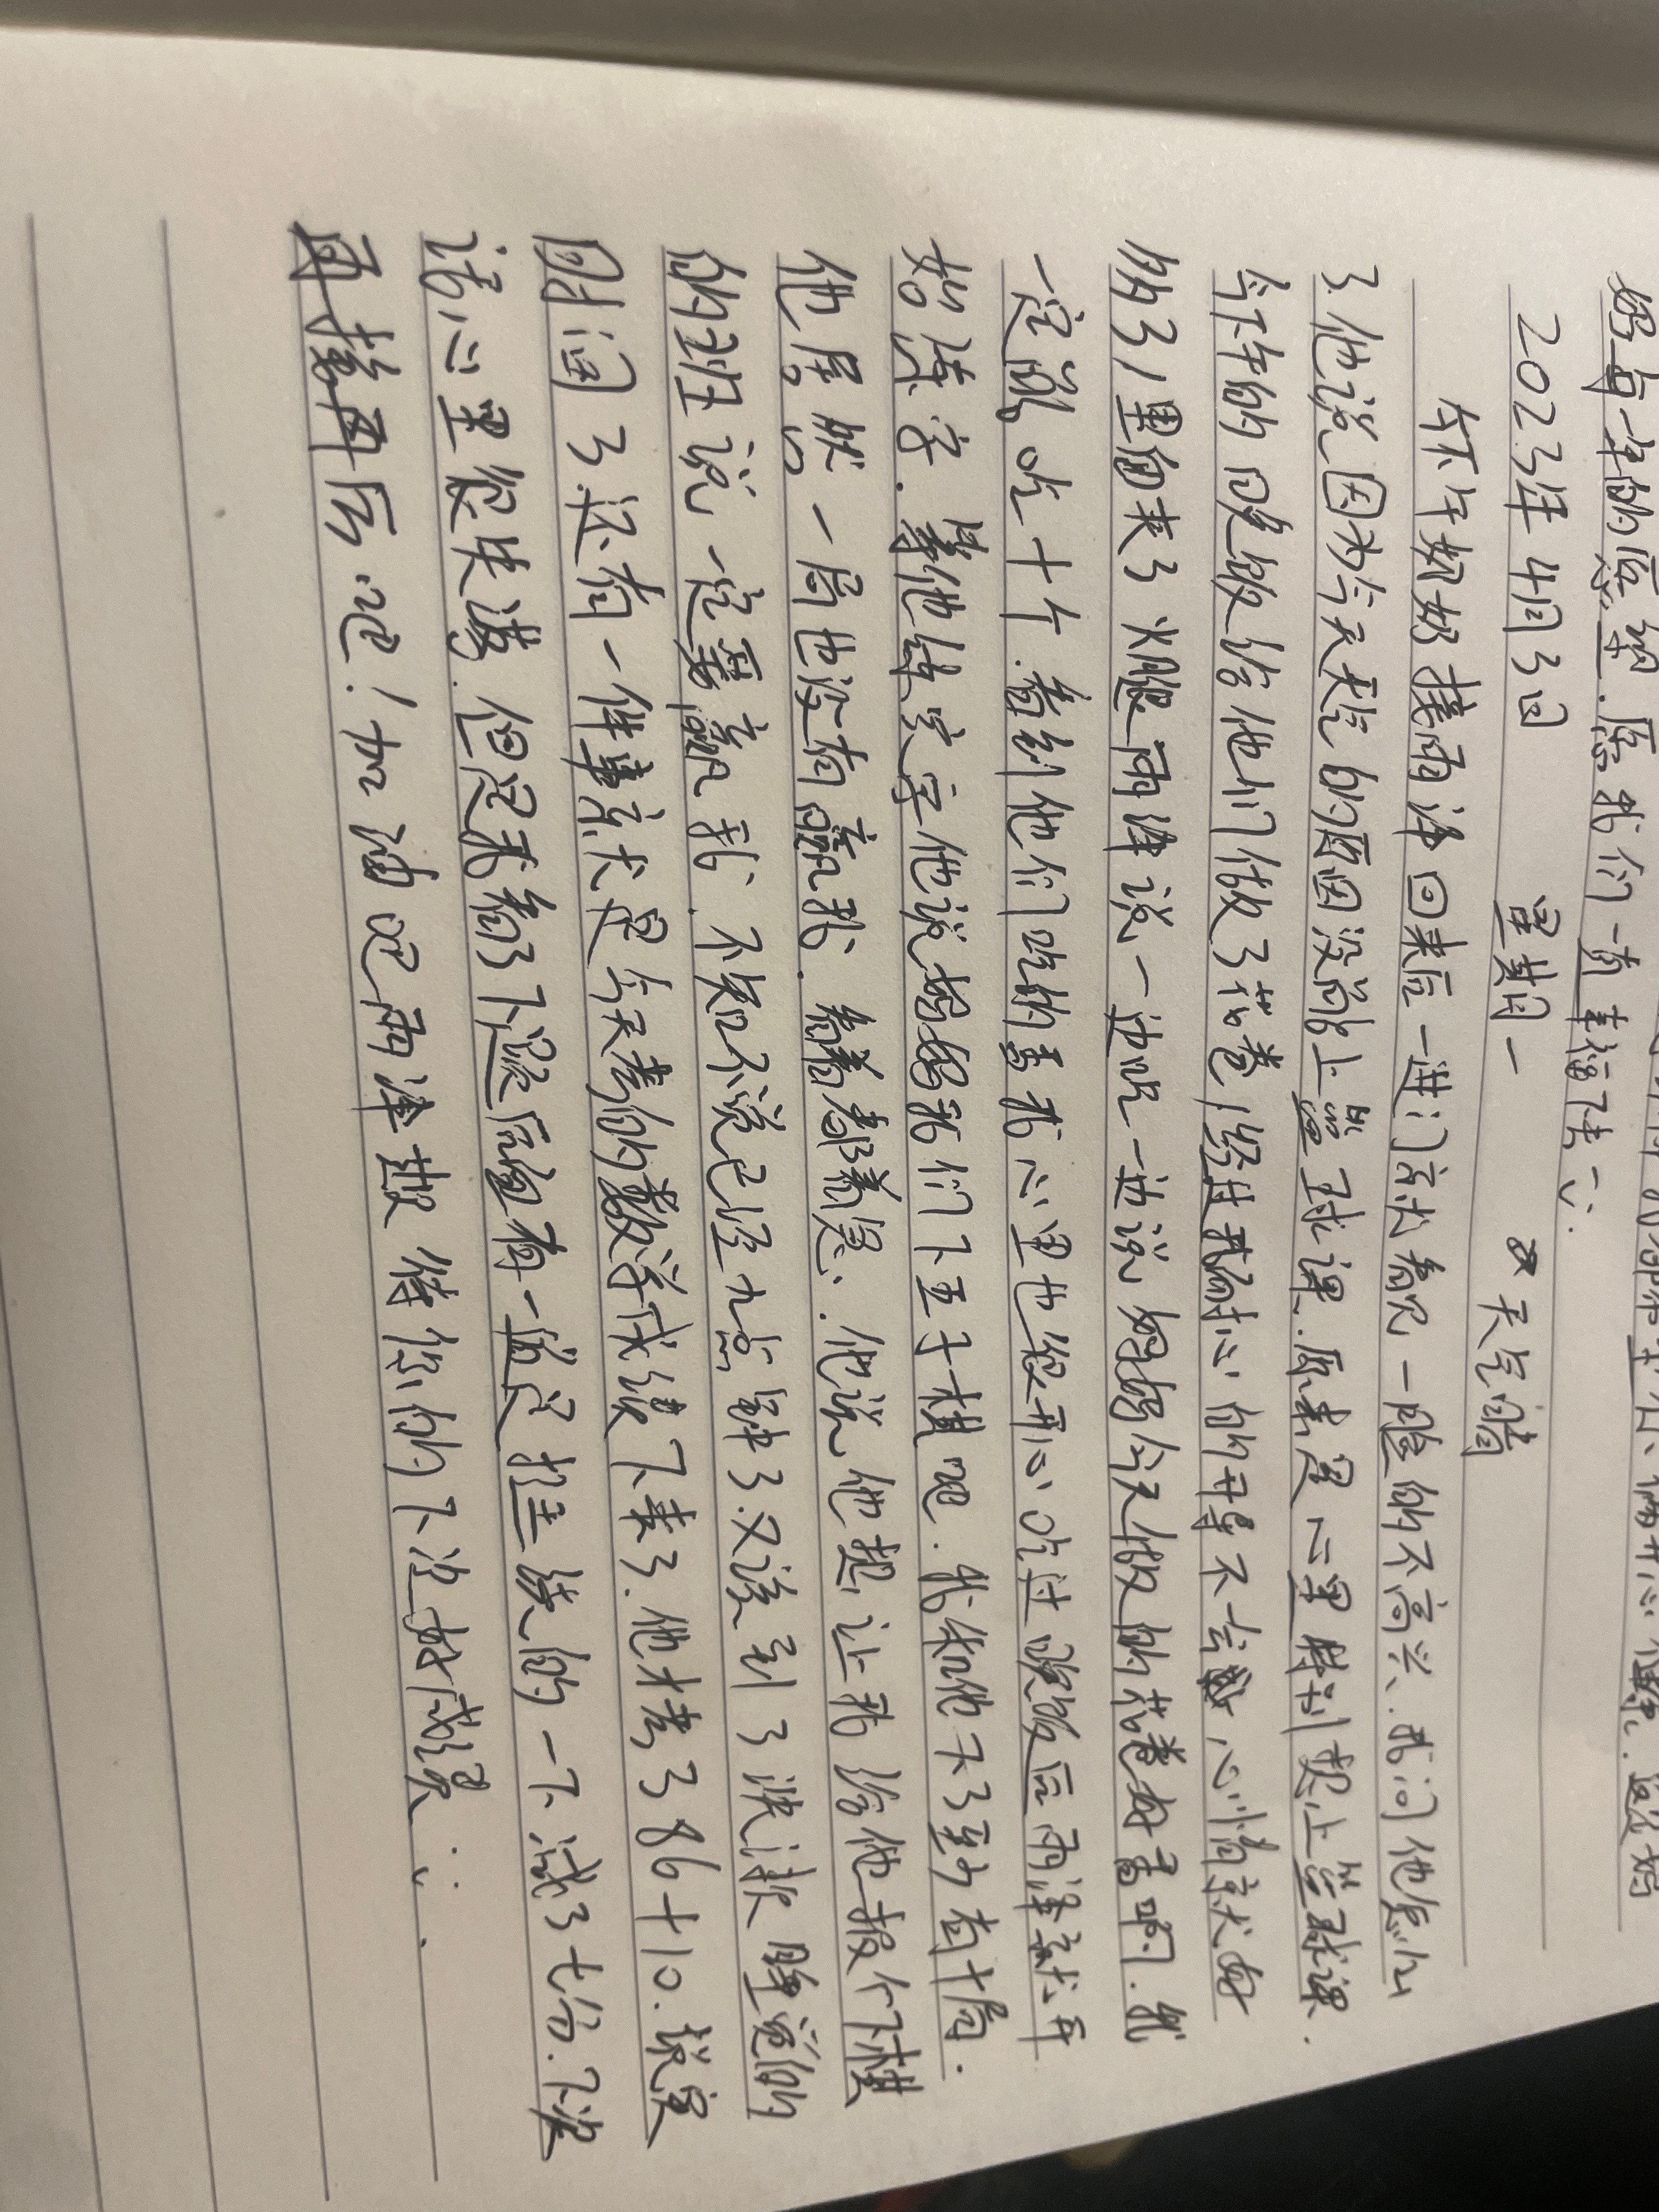 妈每年的愿望.愿我们一直幸福下去
2023年4月3日 星期一 天气晴
今下午奶奶接雨泽回来后一进门就看见一脸的不高兴.我问他怎么
了.他说因为今天天气的原因没能上篮球课.原来是心里特别想上篮球课.
今下午的晚饭给他们做了花卷,经过我耐心的开导不去心情就好
多了,里面夹了火腿雨泽说一边吃一边说妈妈今天做的花卷好香啊.我
一定能吃十个.看到他们吃的香我心里也很开心吃过晚饭后雨泽就开
始练字.等他练完字他说妈妈我们下五子棋吧.我和他下了至少有十局.
他居然一局也没有赢我.看着都着急.他说他想让我给他报个下棋
的班说一定要赢我.不知不觉已经九点钟了.又该到了洗漱睡觉的
时间了.还有一件事就是今天考的数学成绩下来了.他才考了86+10.说实
话心里很失落.但是我看了下最后面有一道没挂线的一下减了七分.下次
再接再厉吧!加油吧雨泽期待你的下次好成绩